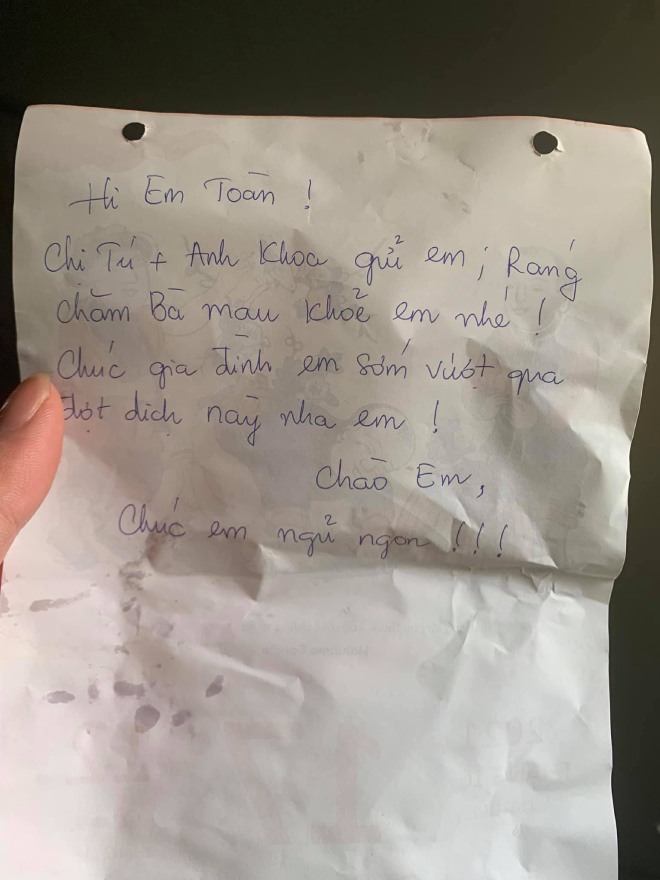 Hi Em Toàn !
Chị Tú + Anh Khoa gửi em ; Ráng
chăm Bà mau khoẻ em nhé !
Chúc gia đình em sớm vượt qua
đợt dịch này nha em !
Chào Em,
Chúc em ngủ ngon !!!